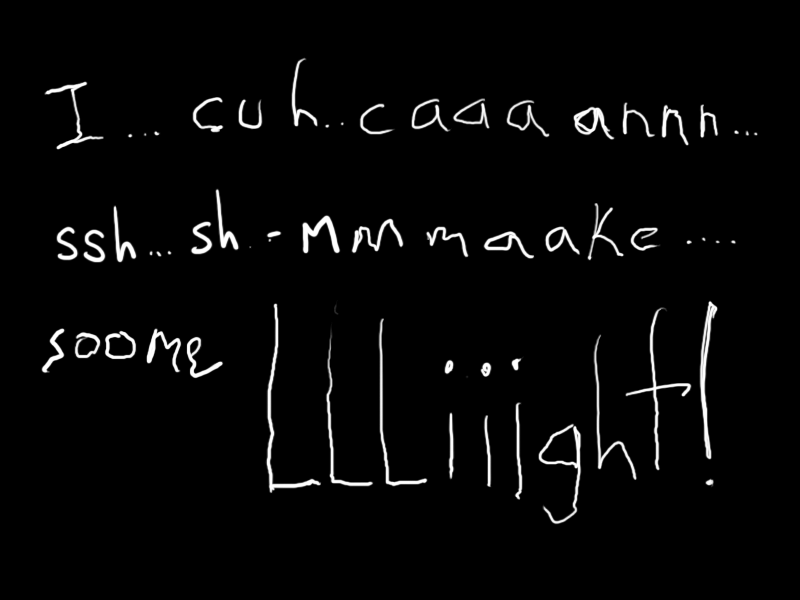 I... cuh..caaaannnn...
ssh...sh.-mmmmaake....
soome LLLiiight!